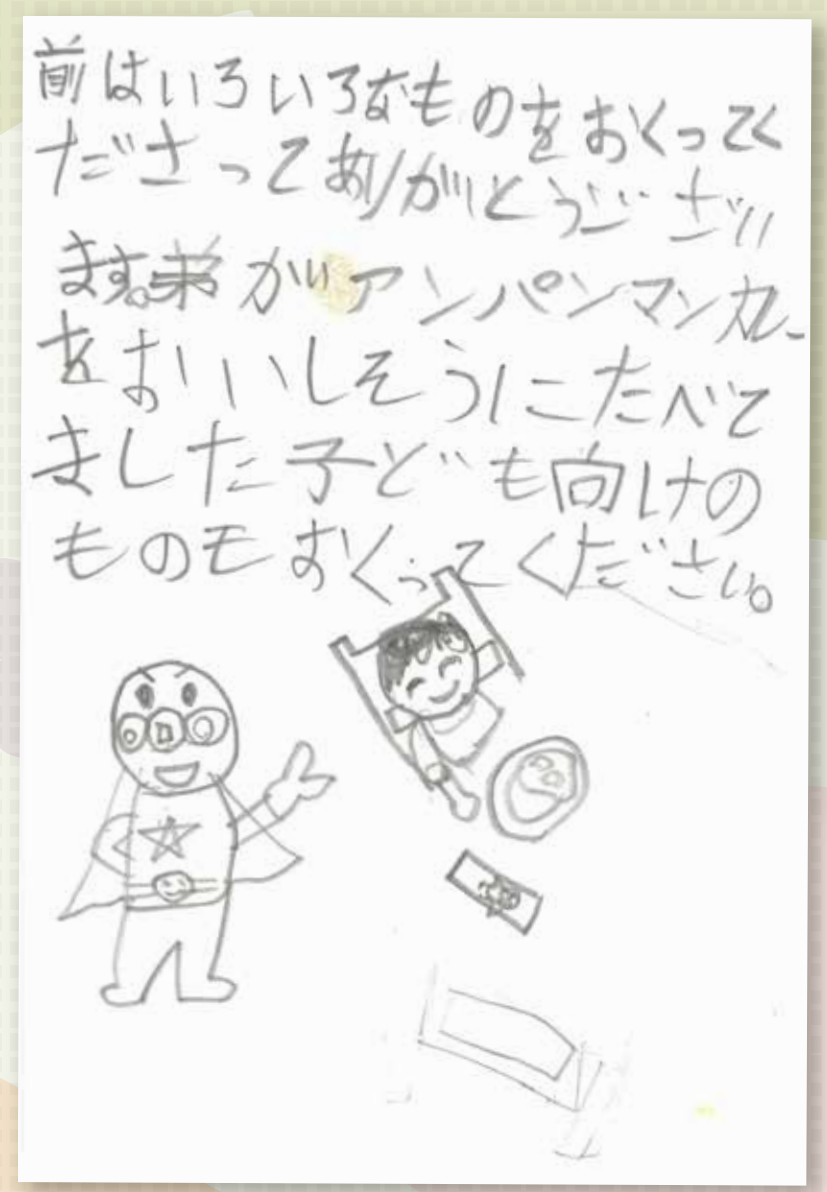 前はいろいろなものをおくってく
ださってありがとうござい
ます。弟がアンパンマンカレー
をおいしそうにたべて
ました子ども向けの
ものモおくってください。